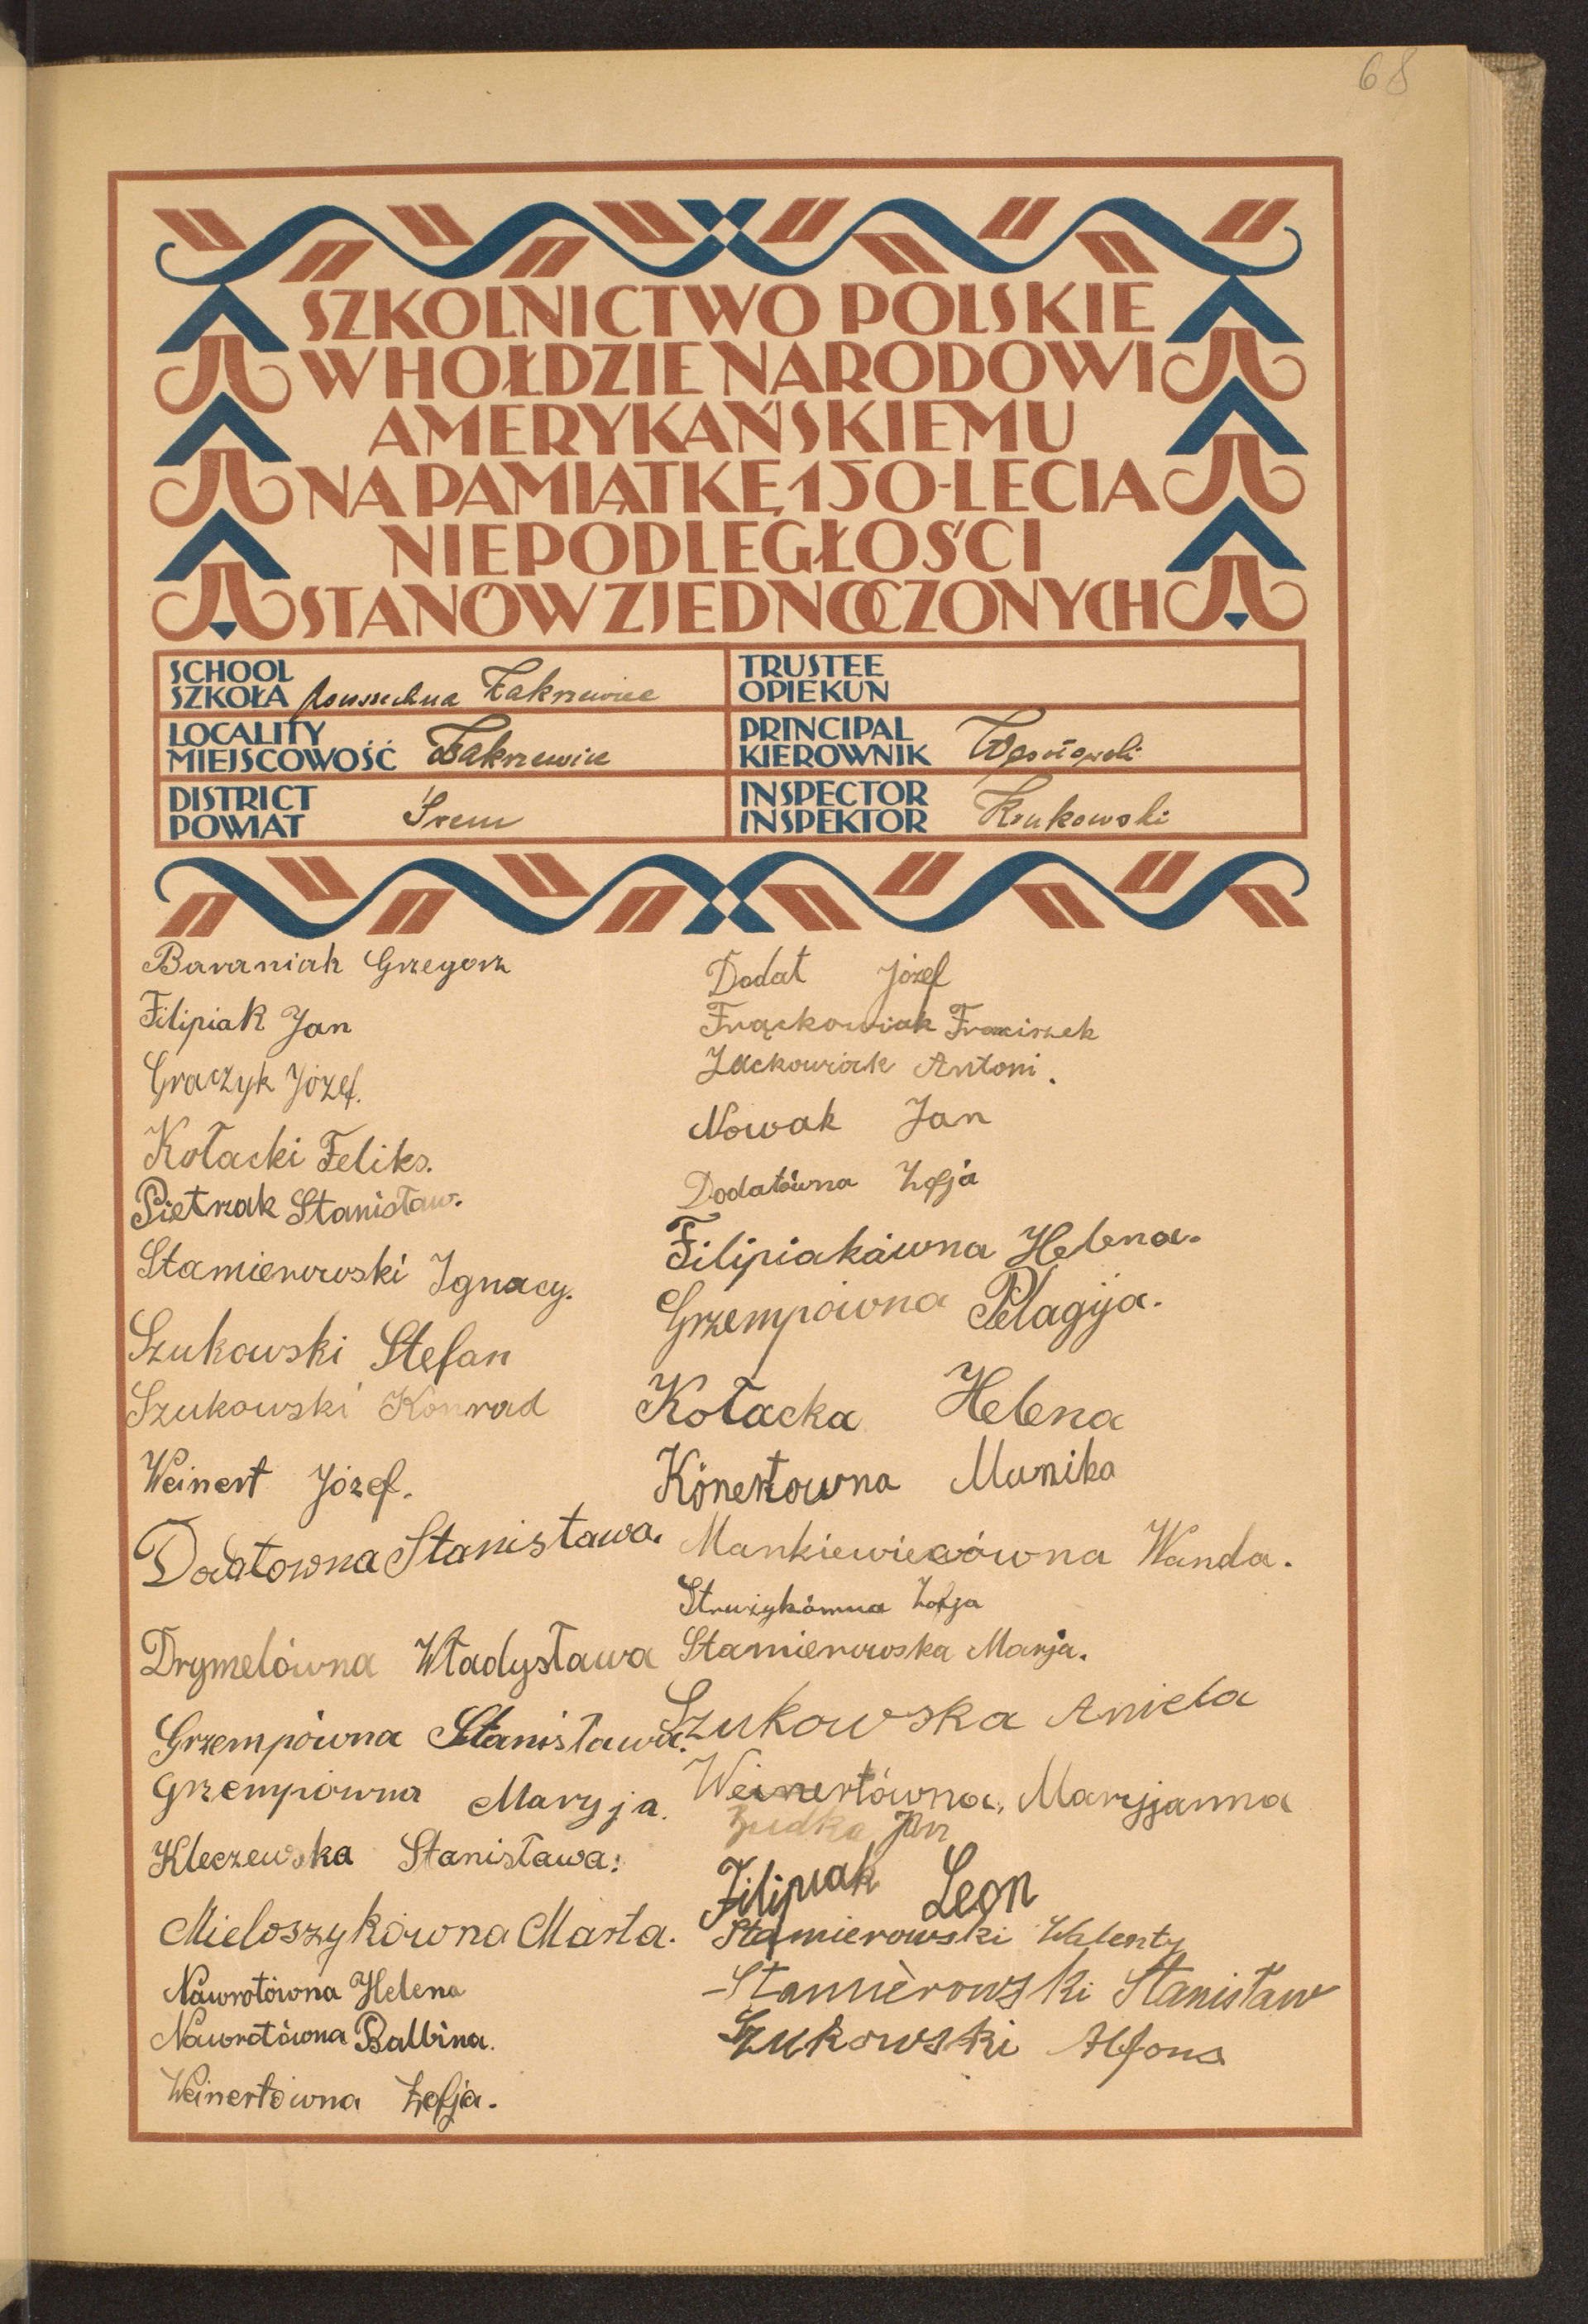 68
SZKOLNICTWO POLSKIE
W HOŁDZIE NARODOWI
AMERYKAŃSKIEMU
NA PAMIĄTKĘ 150-LECIA
NIEPODLEGŁOŚCI
STANÓW ZJEDNOCZONYCH
SCHOOL
SZKOŁA Powszechna Zakrzewice
LOCALITY
MIEJSCOWOŚĆ Zakrzewice
DISTRICT
POWIAT Śrem
TRUSTEE
OPIEKUN
PRINCIPAL
KIEROWNIK
INSPECTOR
INSPEKTOR Krukowski
Baraniak Grzegorz
Filipiak Jan
Graczyk Józef.
Kołacki Feliks.
Pietrzak Stanisław.
Stamierowski Ignacy.
Szukowski Stefan
Szukowski Konrad
Weinert Józef.
Dodatowna Stanisława.
Drymelówna Władysława
Grzempówna Stanisława.
Grzempówna Maryja.
Kleczewska Stanisława.
Mieloszykówna Marta.
Nawrotówna Helena
Nawrotówna Balbina.
Weinertówna Zofja.
Dodat Józef
Frąckowiak Franciszek
Żackowiak Antoni.
Nowak Jan
Dodatówna Zofja
Filipiakówna Helena.
Grzempówna Pelagija.
Kołacka Helena
Könertowna Munika
Mankiewiczówna Wanda.
Strużykówna Zofja
Stamierowska Marja.
Szukowska Aniela
Weinertówna, Maryjanna
Zudka Jan
Filipiak Leon
Stamierowski Walenty
Stamierowski Stanisław
Szukowski Alfons